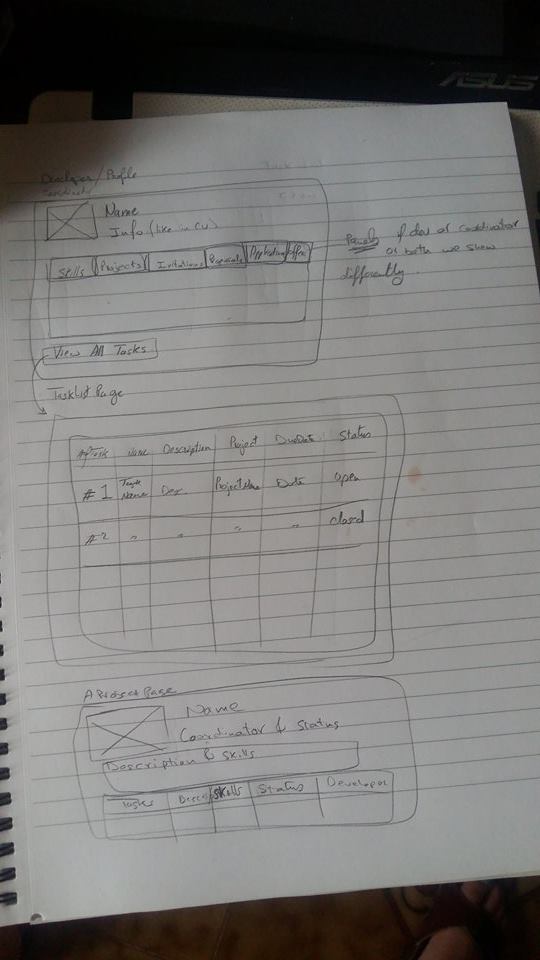 ASUS
Developer/Profile
Name
Info (like in CV)
Skills Projects Invitations Proposals Applications Offers
Panels if dev or coordinator
or both we show
differently.
View All Tasks
TaskList Page
#Task Name Description Project DueDate Status
#1 Task Name Des. Project Name Date open
#2 " " " " closed
A Project Page
Name
Coordinator & Status
Description & Skills
Tasks Descrip Skills Status Developer